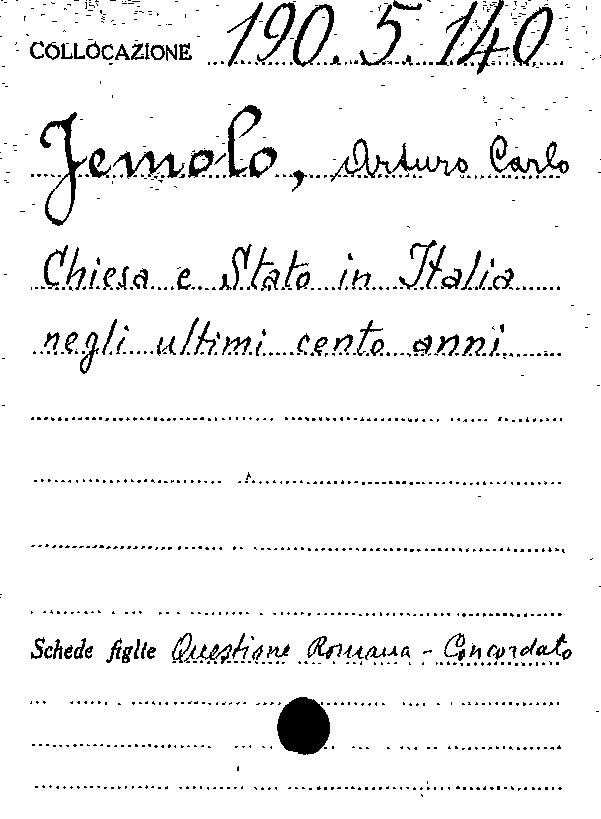 COLLOCAZIONE 190.5.140
Jemolo, Arturo Carlo
Chiesa e Stato in Italia
negli ultimi cento anni
Schede figlie Questione Romana - Concordato